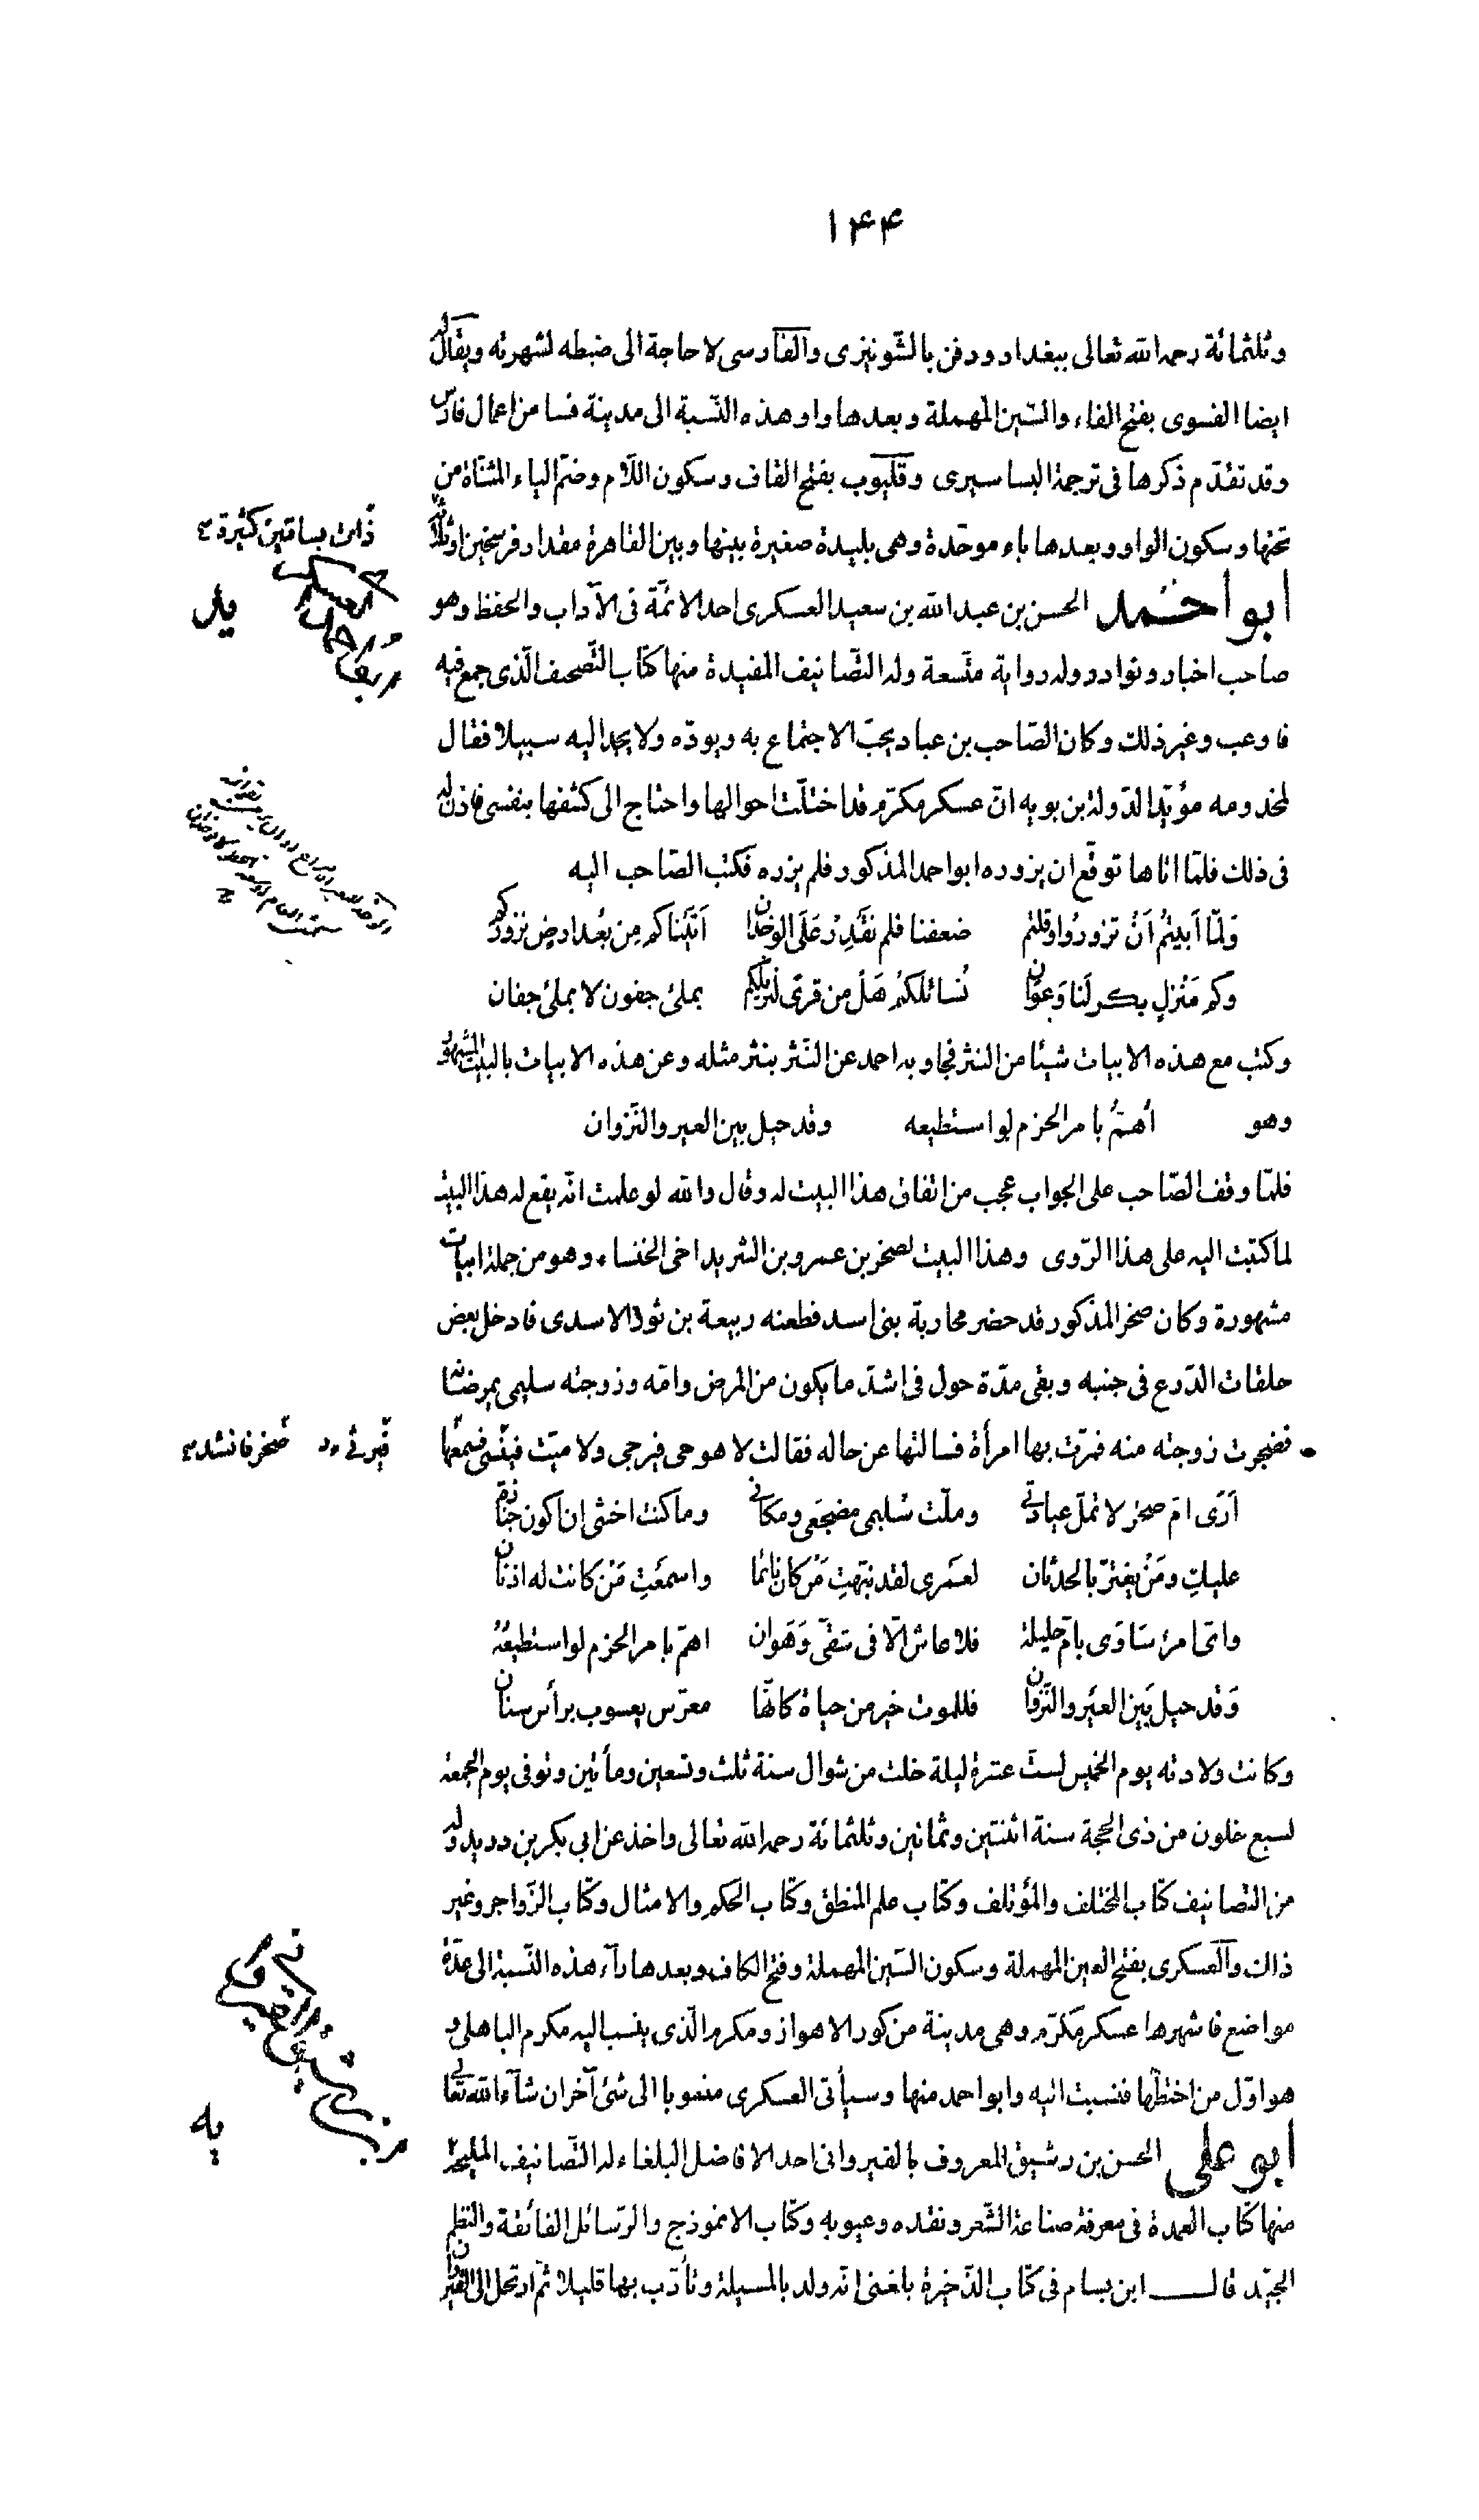 ١٤٤
وثلثمائة رحمه الله تعالى ببغداد ودفن بالشّونيزى والفارسى لا حاجة الى ضبطه لشهرته ويقال له
ايضا الفسوى بفتح الفاء والسّين المهملة وبعدها واو وهذه النّسبة الى مدينة فسا من اعمال فارس
وقد تقدّم ذكرها فى ترجمة البساسيرى وقليوب بفتح القاف وسكون اللّام وضمّ الياء المثنّاة من
تحتها وسكون الواو وبعدها باء موحّدة وهى بليدة صغيرة بينها وبين القاهرة مقدار فرسخين او ثلاثة
ذات بساتين كثيرة
ابو احمد الحسن بن عبد الله بن سعيد العسكرى احد الائمّة فى الآداب والحفظ وهو
صاحب اخبار ونوادر وله رواية متّسعة وله التّصانيف المفيدة منها كتاب التّصحيف الّذى جمع فيه
فاوعب وغير ذلك وكان الصّاحب بن عباد يحبّ الاجتماع به ويودّه ولا يجد اليه سبيلا فقال
لمخدومه مؤيّد الدّولة بن بويه انّ عسكر مكرّم قد اختلّت احوالها واحتاج الى كشفها بنفسى فاذن له
فى ذلك فلمّا اتاها توقّع ان يزوره ابو احمد المذكور فلم يزره فكتب الصّاحب اليه
وَلمّا اَبيتُم اَنْ تزورُوا وقلتم ضعفنا فلم نَقْدِرْ عَلَى الوخدان اَتَيْناكم مِن بُعد ارضٍ نزوركم
وكم مَنْزلٍ بكر لَنا وَعوان نُسائلكمُ هَلْ من قرىً لنزيلكم بملئ جفون لا بملئ جفان
وكتب مع هذه الابيات شيئا من النثر فجاوبه احمد عن النّثر بنثر مثله وعن هذه الابيات بالبيت المشهور
وهو أهمُّ بامر الحزم لو استطيعه وقد حيل بين العير والنّزوان
فلمّا وقف الصّاحب على الجواب عجب من اتفاق هذا البيت له وقال والله لو علمت انّه يقع له هذا البيت
لما كتبت اليه على هذا الرّوى وهذا البيت لصخر بن عمرو بن الشريد اخى الخنساء وهو من جملة ابيات
مشهورة وكان صخر المذكور قد حضر محاربة بنى اسد فطعنه ربيعة بن ثور الاسدى فادخل بعض
حلقات الدّرع فى جنبه وبقى مدّة حول فى اشدّ ما يكون من المرض وامّه وزوجته سليمى يمرضانه
فضجرت زوجته منه فمرّت بها امرأة فسالتها عن حاله فقالت لا هو حى فيرجى ولا ميّت فينسى فسمعها
صخر فانشد
اَرَى امّ صخر لا تملّ عيادتى وملّت سُليمى مضجعى ومكانى وما كنت اخشى ان اكون جنازة
عليكِ ومَنْ يغترّ بالحدثان لعَمْرى لقد نبّهتِ مَنْ كان نائما واسمعَتِ مَنْ كانت له اذنان
واىّ امرئ ساوَى بامّ حليلة فلا عاش الّا فى شقىً وَهَوان اهمّ بامر الحزم لو استطيعُهُ
وَقد حيل بَين العَير والنّزوان فللموت خير من حياة كانّها معرّس يعسوب برأس سنان
وكانت ولادته يوم الخميس لستّ عشرة ليلة خلت من شوال سنة ثلث وتسعين ومأتين وتوفى يوم الجمعة
لسبع خلون من ذى الحجة سنة اثنتين وثمانين وثلثمائة رحمه الله تعالى واخذ عن ابى بكر بن دريد وله
من التصانيف كتاب المختلف والمؤتلف وكتاب علم المنطق وكتاب الحكم والامثال وكتاب الزّواجر وغير
ذلك والعسكرى بفتح العين المهملة وسكون السّين المهملة وفتح الكاف وبعدها رآء هذه النّسبة الى عدّة
مواضع فاشهرها عسكر مكرّم وهى مدينة من كور الاهواز ومكرم الّذى ينسب اليه مكرم الباهلى و
هو اوّل من اختطّها فنسبت اليه وابو احمد منها وسيأتى العسكرى منسوبا الى شئ آخر ان شآء الله تعالى
يه
أبو على الحسن بن رشيق المعروف بالقيروانى احد الافاضل البلغاء له التّصانيف المليحة
منها كتاب العمدة فى معرفة صناعة الشّعر ونقده وعيوبه وكتاب الانموذج والرّسائل الفائقة والنظم
الجيّد قال ابن بسام فى كتاب الذّخيرة بلغنى انّه ولد بالمسيلة وتأدّب بها قليلا ثمّ ارتحل الى القيروان